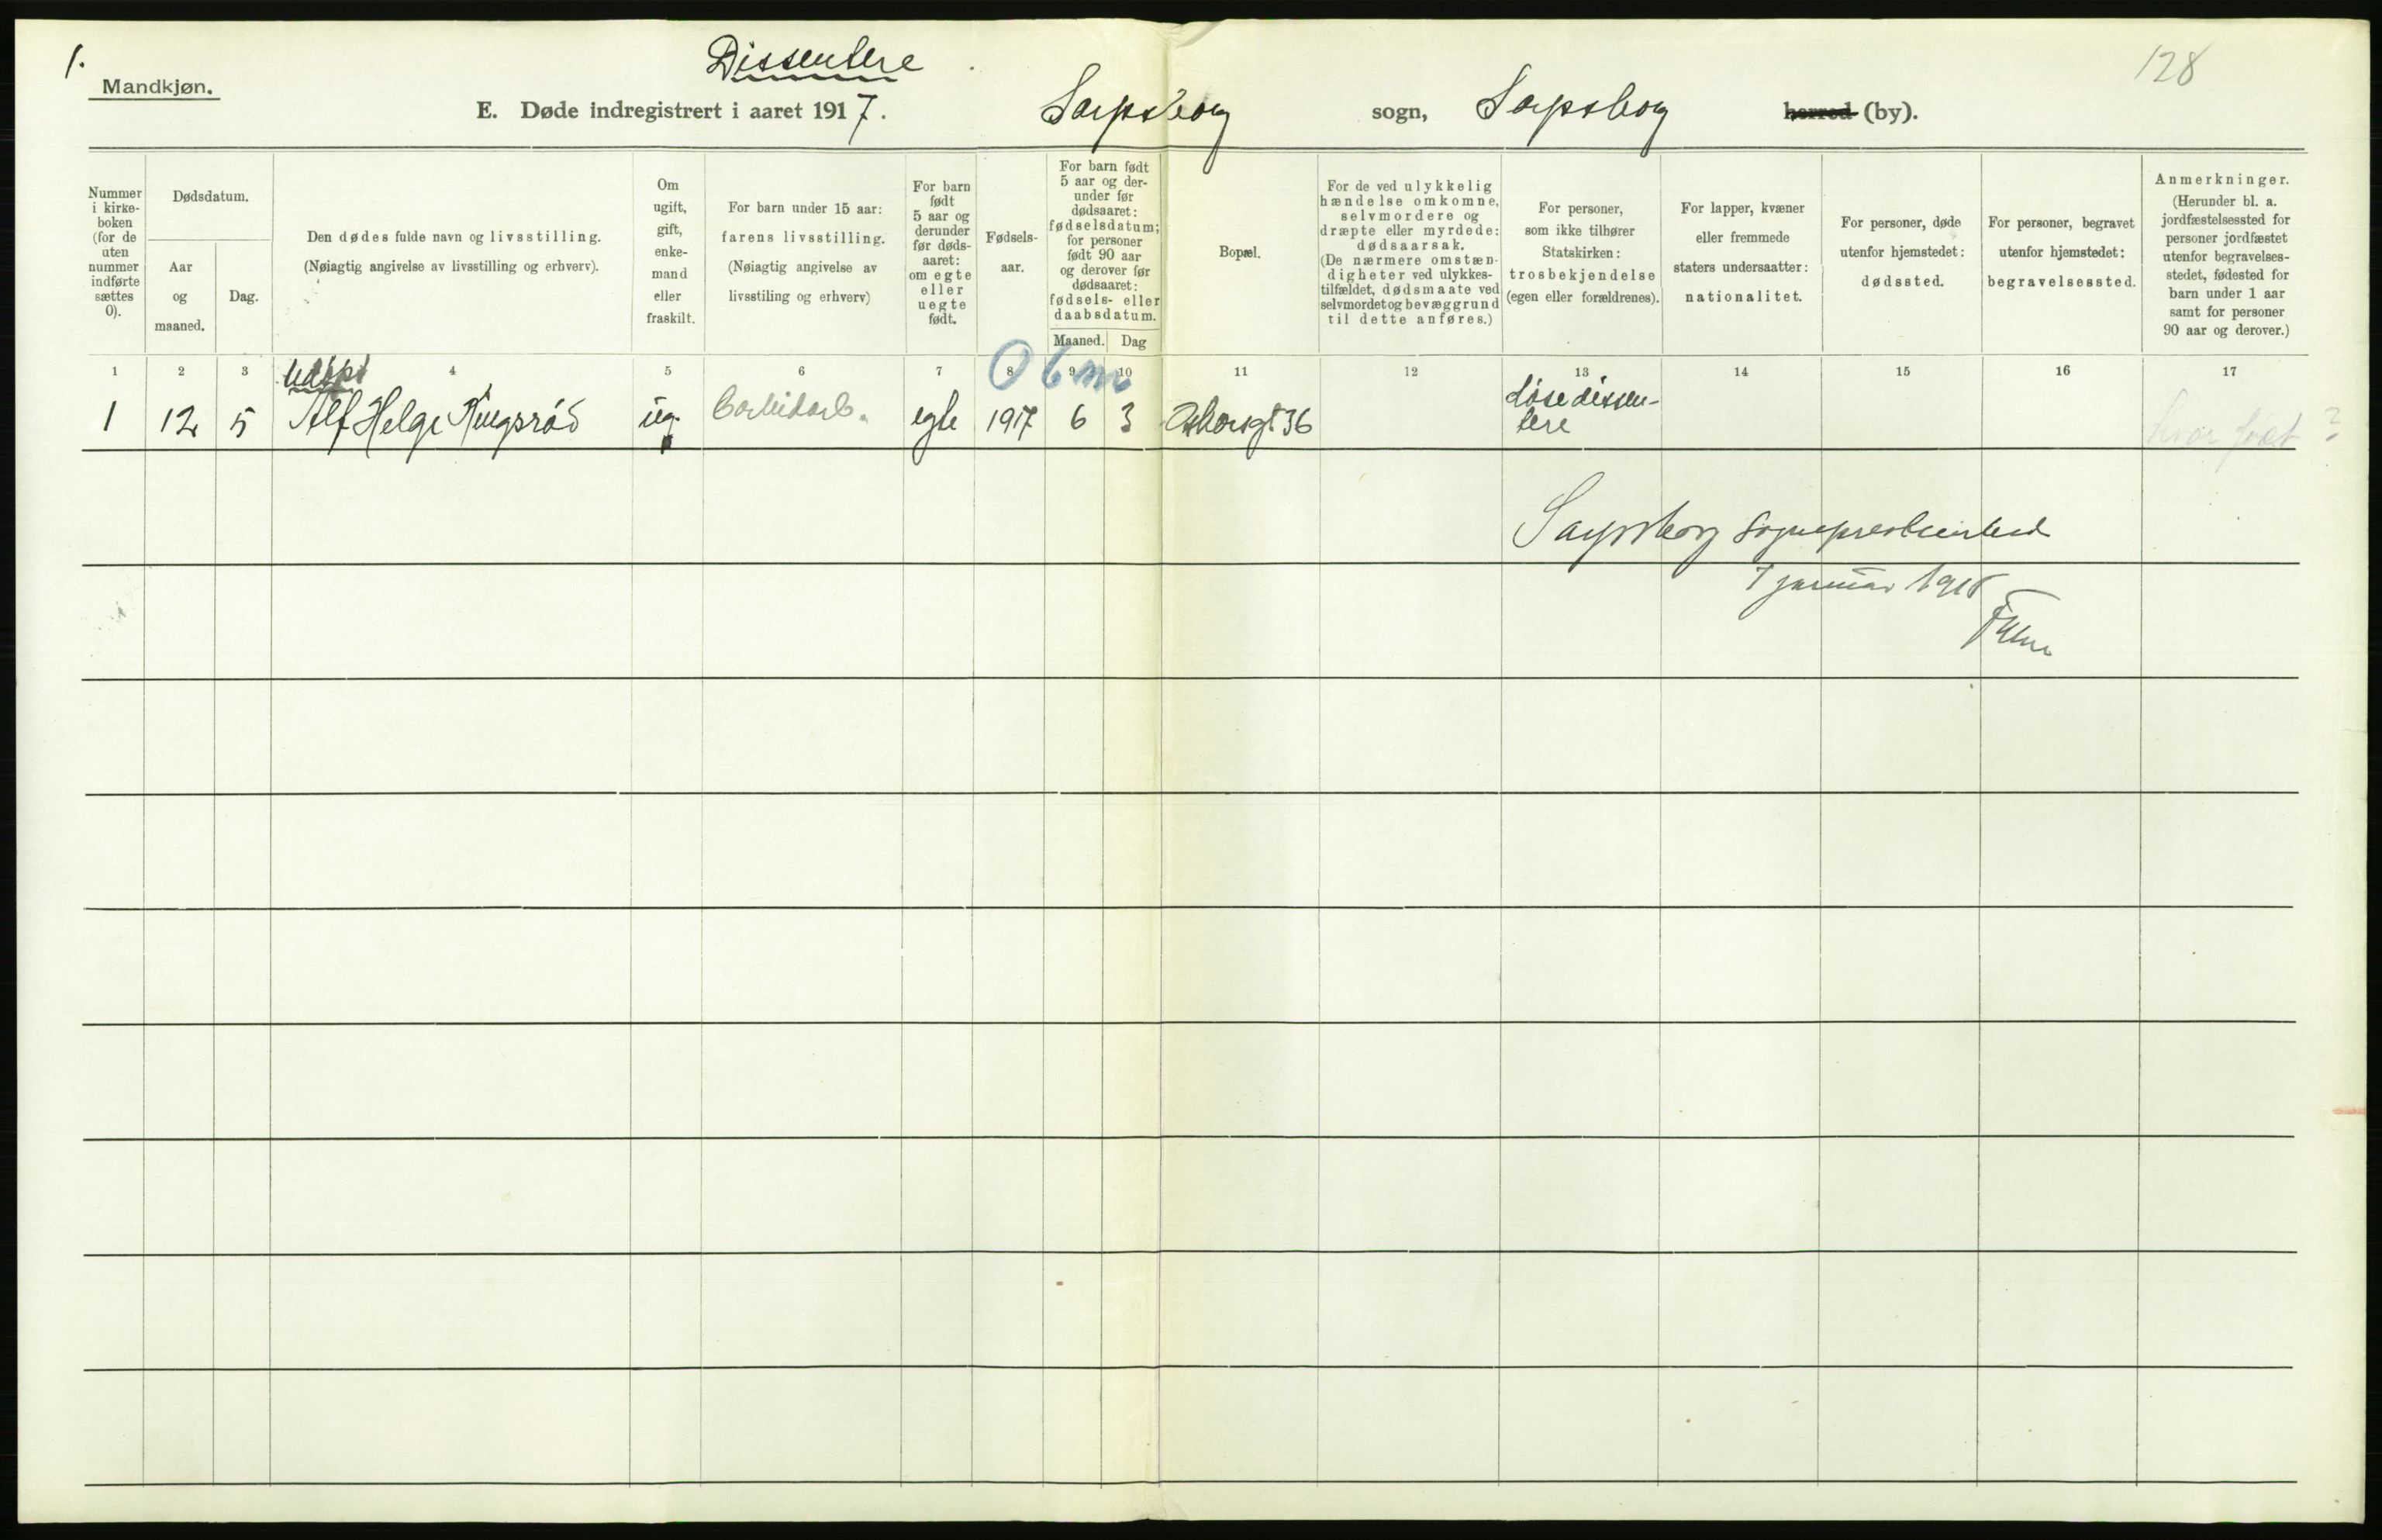 1.
Dissentere
128
Mandkjøn.
E. Døde indregistrert i aaret 1917. Sarpsborg sogn, Sarpsborg herred (by).
Nummer i kirke-boken (for de uten nummer indførte sættes 0).
Dødsdatum.
Aar og maaned.
Dag.
Den dødes fulde navn og livsstilling.
(Nøiagtig angivelse av livsstilling og erhverv).
Om ugift, gift, enke-mand eller fraskilt.
For barn under 15 aar:
farens livsstilling.
(Nøiagtig angivelse av
livsstiling og erhverv)
For barn født 5 aar og derunder før døds-aaret: om egte eller uegte født.
Fødsels-aar.
For barn født 5 aar og der-under før dødsaaret: fødselsdatum; for personer født 90 aar og derover før dødsaaret: fødsels- eller daabsdatum.
Maaned. Dag
Bopæl.
For de ved ulykkelig hændelse omkomne, selvmordere og dræpte eller myrdede: dødsaarsak.
(De nærmere omstæn-digheter ved ulykkes-tilfældet, dødsmaate ved selvmordet og bevæggrund til dette anføres.)
For personer, som ikke tilhører Statskirken: trosbekjendelse (egen eller forældrenes).
For lapper, kvæner eller fremmede staters undersaatter: nationalitet.
For personer, døde utenfor hjemstedet: dødssted.
For personer, begravet utenfor hjemstedet: begravelsessted.
Anmerkninger.
(Herunder bl. a. jordfæstelsessted for personer jordfæstet utenfor begravelses-stedet, fødested for barn under 1 aar samt for personer 90 aar og derover.)
1 2 3 4 5 6 7 8 9 10 11 12 13 14 15 16 17
0 6 m
Udøpt
1 12 5 Alf Helge Ringsrød ug. egte 1917 6 3 36 Løse dissen-
tere
hvor født?
Sarpsborg sogneprestembed
7 januar 1918